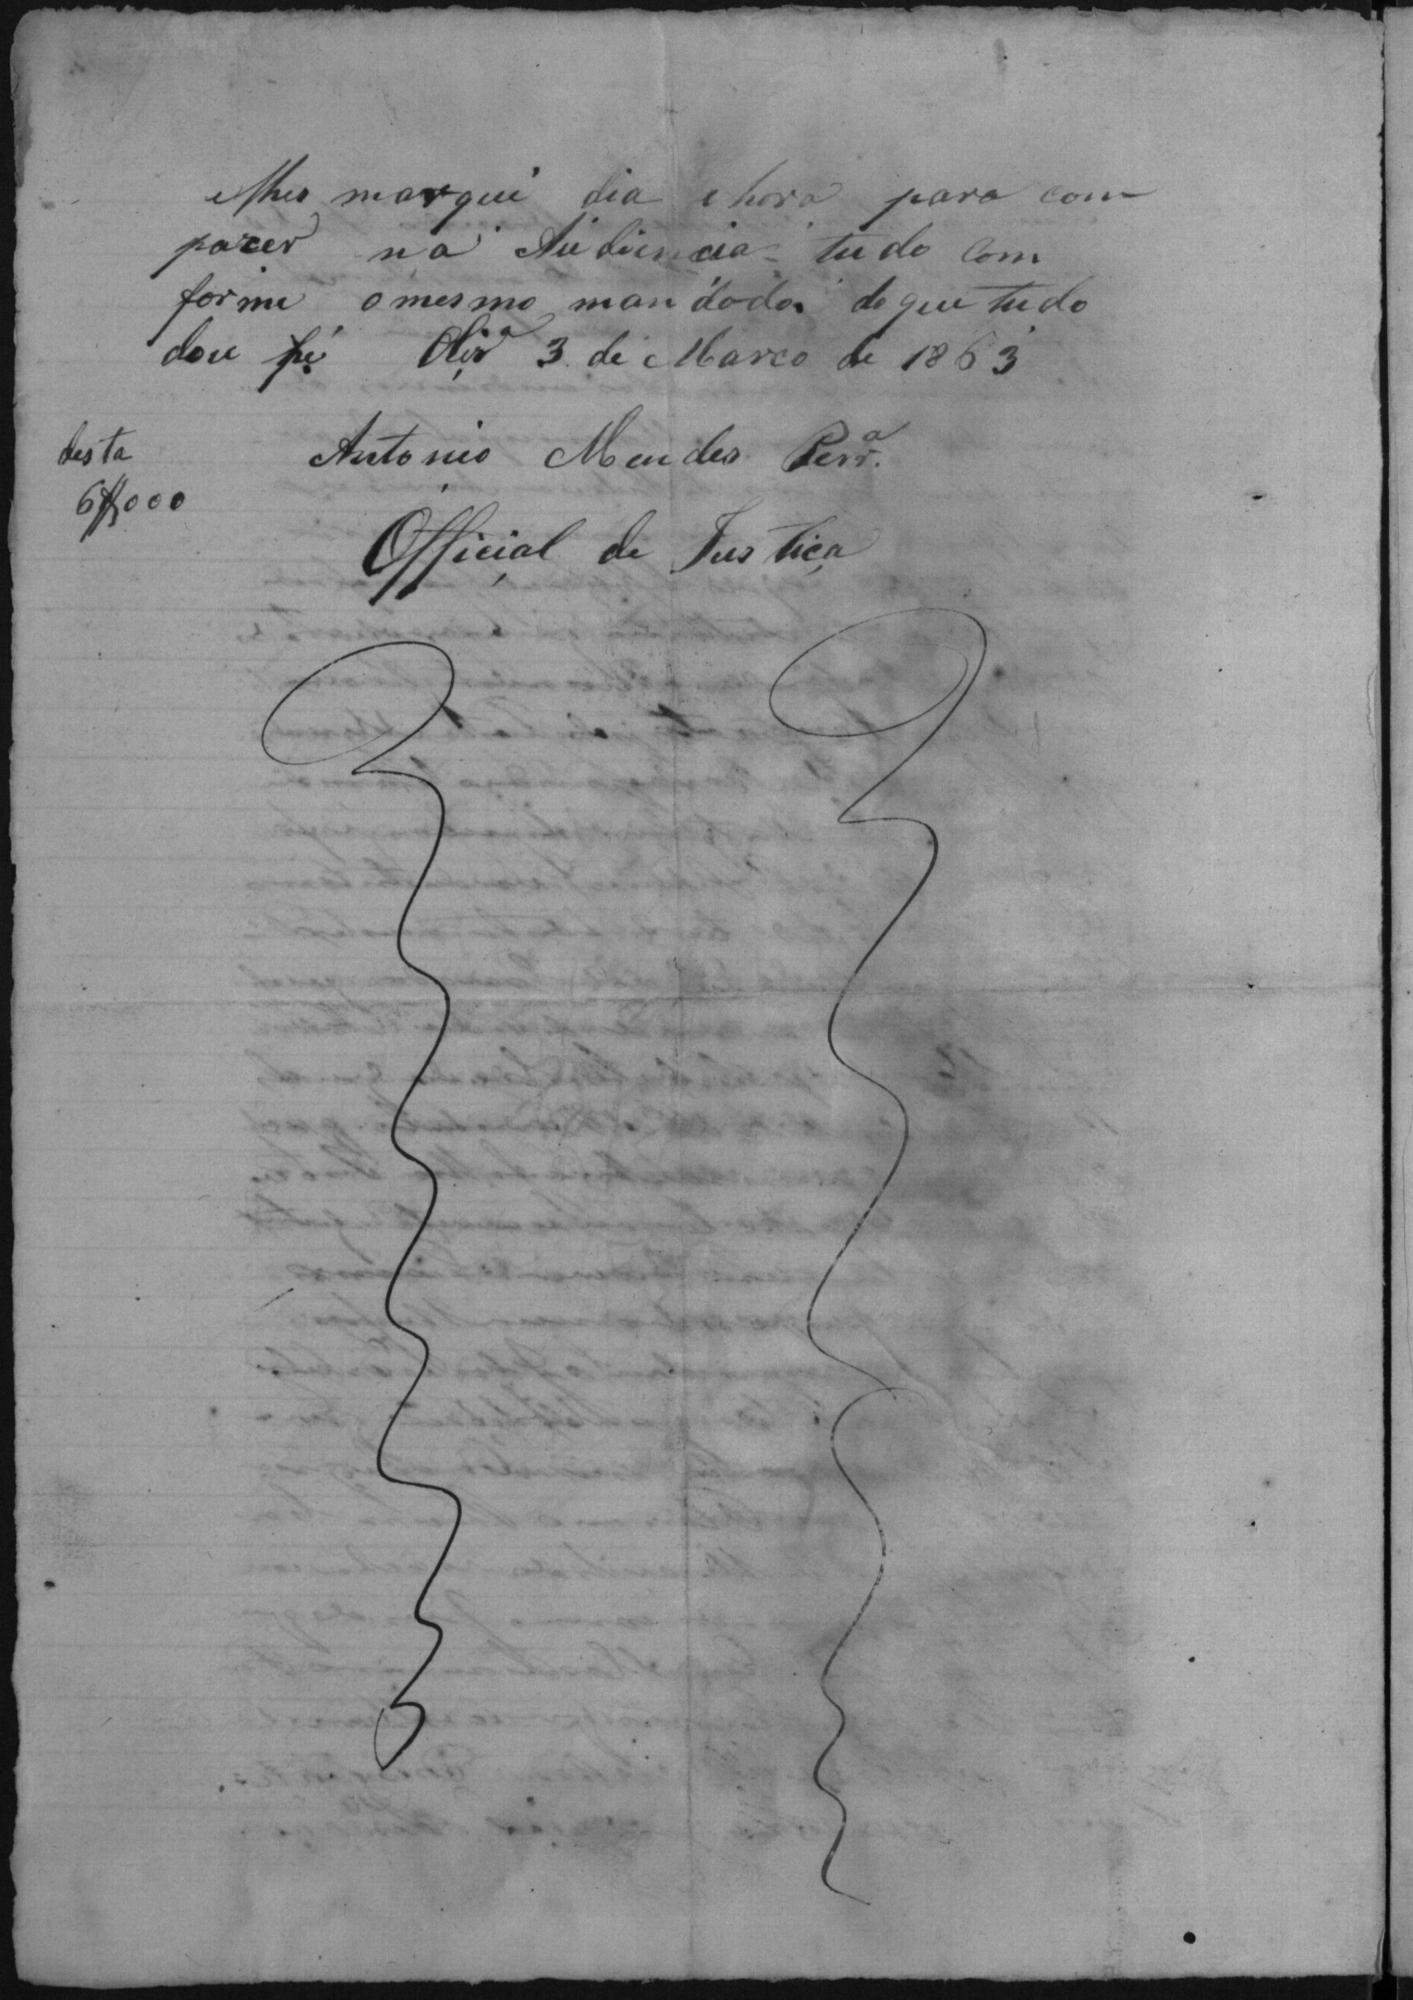 elhes marquei dia e hora para com
parcer na Audiencia tudo com
forme o mesmo mandado de que tudo
dou fé Olivr.ª 3 de Março de 1863
desta
6$000
Antonio Mendes Perr.ª
Official de Justiça